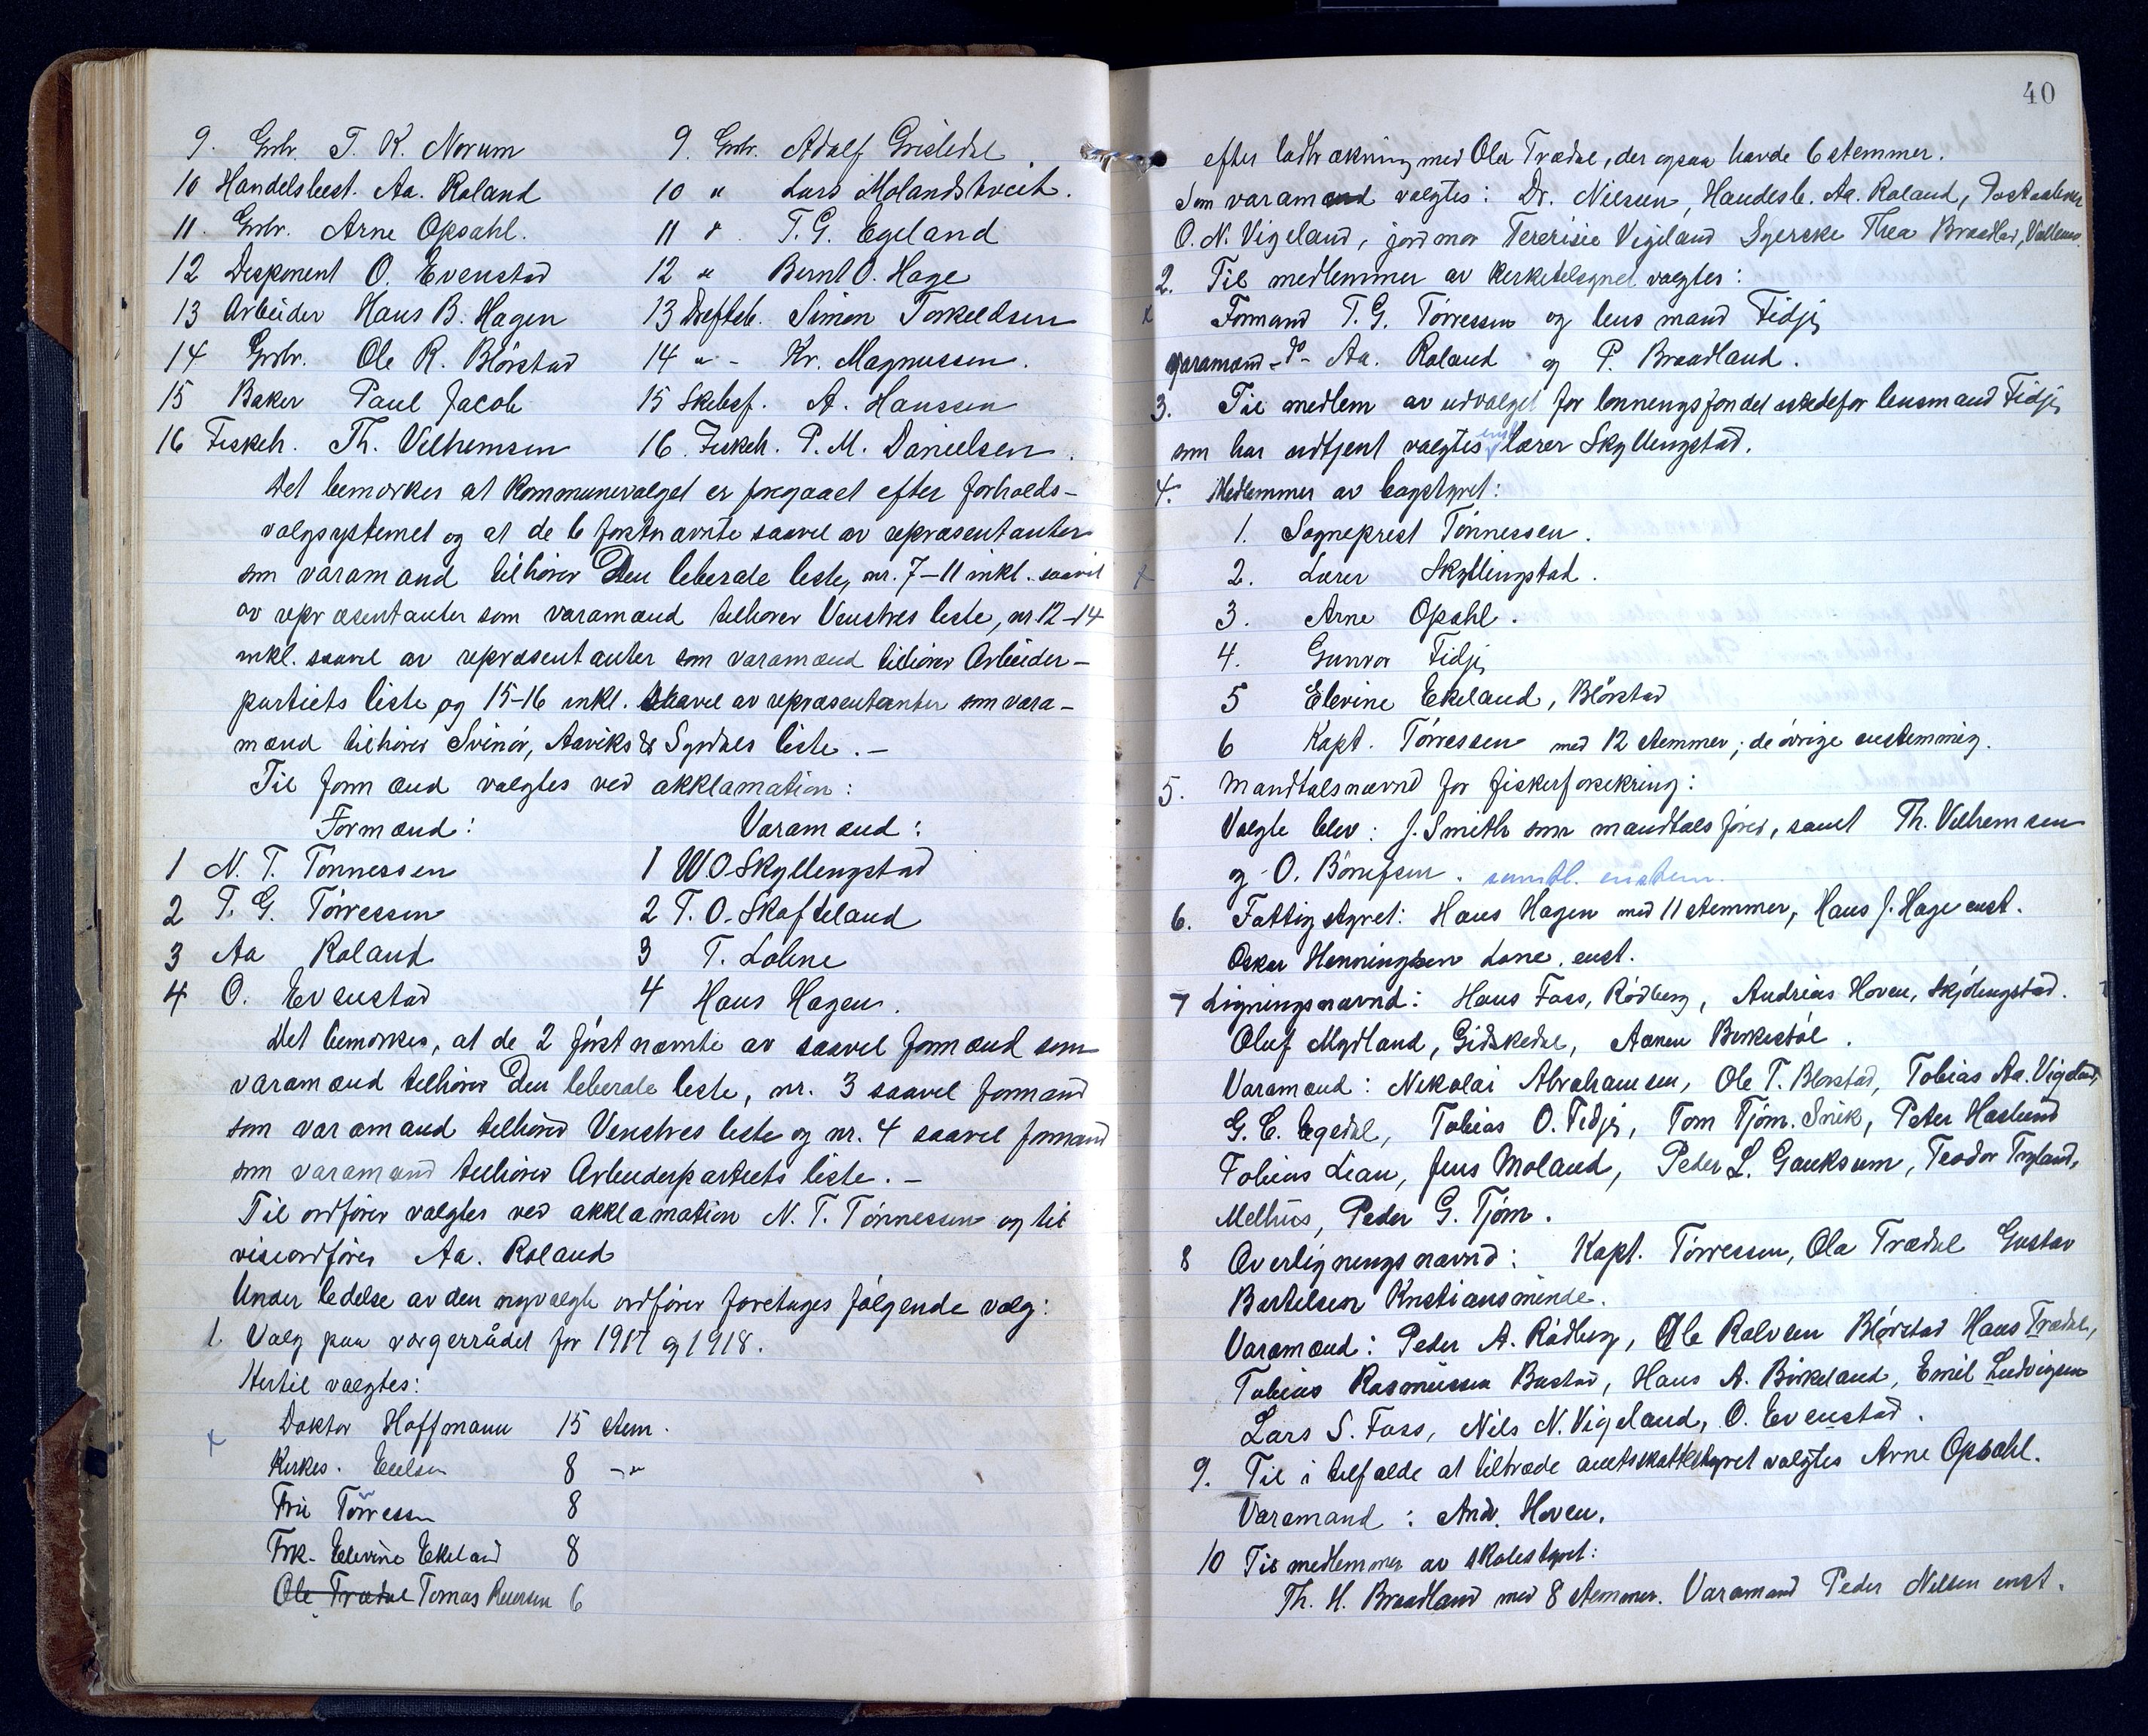 9. Grbr. T. K. Norum 9. Grbr. Adolf Gisledal.
10 Handelsbest. Aa. Roland 10 " Lars Molandskveit.
11. Grbr. Arne Opsahl. 11 " T. G. Egeland
12 Disponent O. Evenstad 12 " Bernt O. Hage
13 Arbeider Hans B. Hagen 13 Simon Torkeldsen
14 Grbr. Ole R. Blörstad 14 " - Kr. Magnussen.
15 Baker Paul Jacob 15 Skibsf. A. Hanssen
16 Fiskeh. Th. Vilhemsen 16. Fiskeh. P. M. Danielsen.
Det bemerkes at kommunevalget er foregaaet efter forholds-
valgsystemet og at de 6 förstnævnte saavel av repræsentanter
som varamænd tilhörer Den liberale liste, nr. 7-11 inkl. saavel
av repræsentanter som varamænd tilhörer Venstres liste, nr. 12-14
inkl. saavel av repræsentanter som varamænd tilhörer Arbeider-
partiets liste og 15-16 inkl. saavel av repræsentanter som vara-
mænd tilhörer Svinör, Aaviks & Syrdals liste. -
Til formænd valgtes ved akklamation:
Formænd: Varamænd:
1 N. T. Tönnessen 1 W O Skyllingstad
2 T. G. Törressen 2 T. O. Skofteland
3 Aa Roland 3 T. Lohne
4 O. Evenstad 4 Hans Hagen.
Det bemerkes, at de 2 förstnævnte av saavel formænd som
varamænd tilhörer Den liberale liste, nr. 3 saavel formand
som varamand tilhörer Venstres liste og nr. 4 saavel formand
som varamand tilhörer Arbeiderpartiets liste. -
Til ordförer valgtes ved akklamation N. T. Tönnessen og til
viseordförer Aa. Roland
Under ledelse av den nyvalgte ordförer foretages fölgende valg:
1. Valg paa vergerrådet for 1917 og 1918.
Hertil valgtes:
x Doktor Hoffmann 15 stem.
Kirkes. Eielsen 8 -"-
Fru Törressen 8
Frk. Elevine Ekeland 8
Ole Trædal Tomas Reiersen 6
40
efter lodtrækning med Ola Trædal, der ogsaa havde 6 stemmer.
Som varamænd valgtes: Dr. Nielsen, Handesb. Aa. Roland,
O. N. Vigeland, jordmor Vigeland Syerske Thea Braadlad,
2. Til medlemmer av kirketilsynet valgtes:
x Formand T. G. Törressen og lensmand Fidje
varamænd -do- Aa. Roland og P. Braadland.
3. Til medlem av udvalget for lönningsfondet istedefor lensmand Fidje
som har udtjent valgtes enst lærer Skyllingstad.
4. Medlemmer av bogstyret:
1. Sogneprest Tönnessen.
x 2. Lærer Skyllingstad.
3. Arne Opsahl.
4. Gunvor Fidje
5 Elevine Ekeland, Blörstad
6 Kapt. Törressen med 12 stemmer; de övrige enstemmig.
5. Mandtalsnævnd for fiskerforsikring:
Valgte blev: J. Smith som mandtalsförer, samt Th. Vilhemsen
og O. Börufsen. samtl. enstem.
6. Fattigstyret: Hans Hagen med 11 stemmer, Hans J. Hage enst.
Oskar Henningsen Lone. enst.
7 Ligningsnævnd: Hans Foss, Rödberg, Andreas Hoven, Skjölingstad.
Oluf Mydland, Gidskedal, Aanen Birkestöl.
Varamænd: Nikolai Abrahamsen, Ole T. Blörstad, Tobias Aa. Vigeland,
G. C. Egedal, Tobias O. Fidje, Tom Tjöm. Snik, Peter Haslund
Tobias Lian, Jens Moland, Peder L. Gauksum, Teodor Tryland,
Melhus, Peder G. Tjöm.
8 Overligningsnævnd: Kapt. Törressen, Ola Trædal Gustav
Bertelsen Kristiansminde.
Varamænd: Peder A. Rödberg, Ole Rolvsen Blörstad Hans Trædal,
Tobias Rasmussen Bustad, Hans A. Birkeland, Emil Ludvigsen
Lars S. Foss, Nils N. Vigeland, O. Evenstad.
9. Til i tilfælde at tiltræde amtskattestyret valgtes Arne Opsahl.
Varamand: And. Hoven.
10 Til medlemmer av skolestyret:
Th. H. Braadland med 8 stemmer. Varamand Peder Nilsen enst.